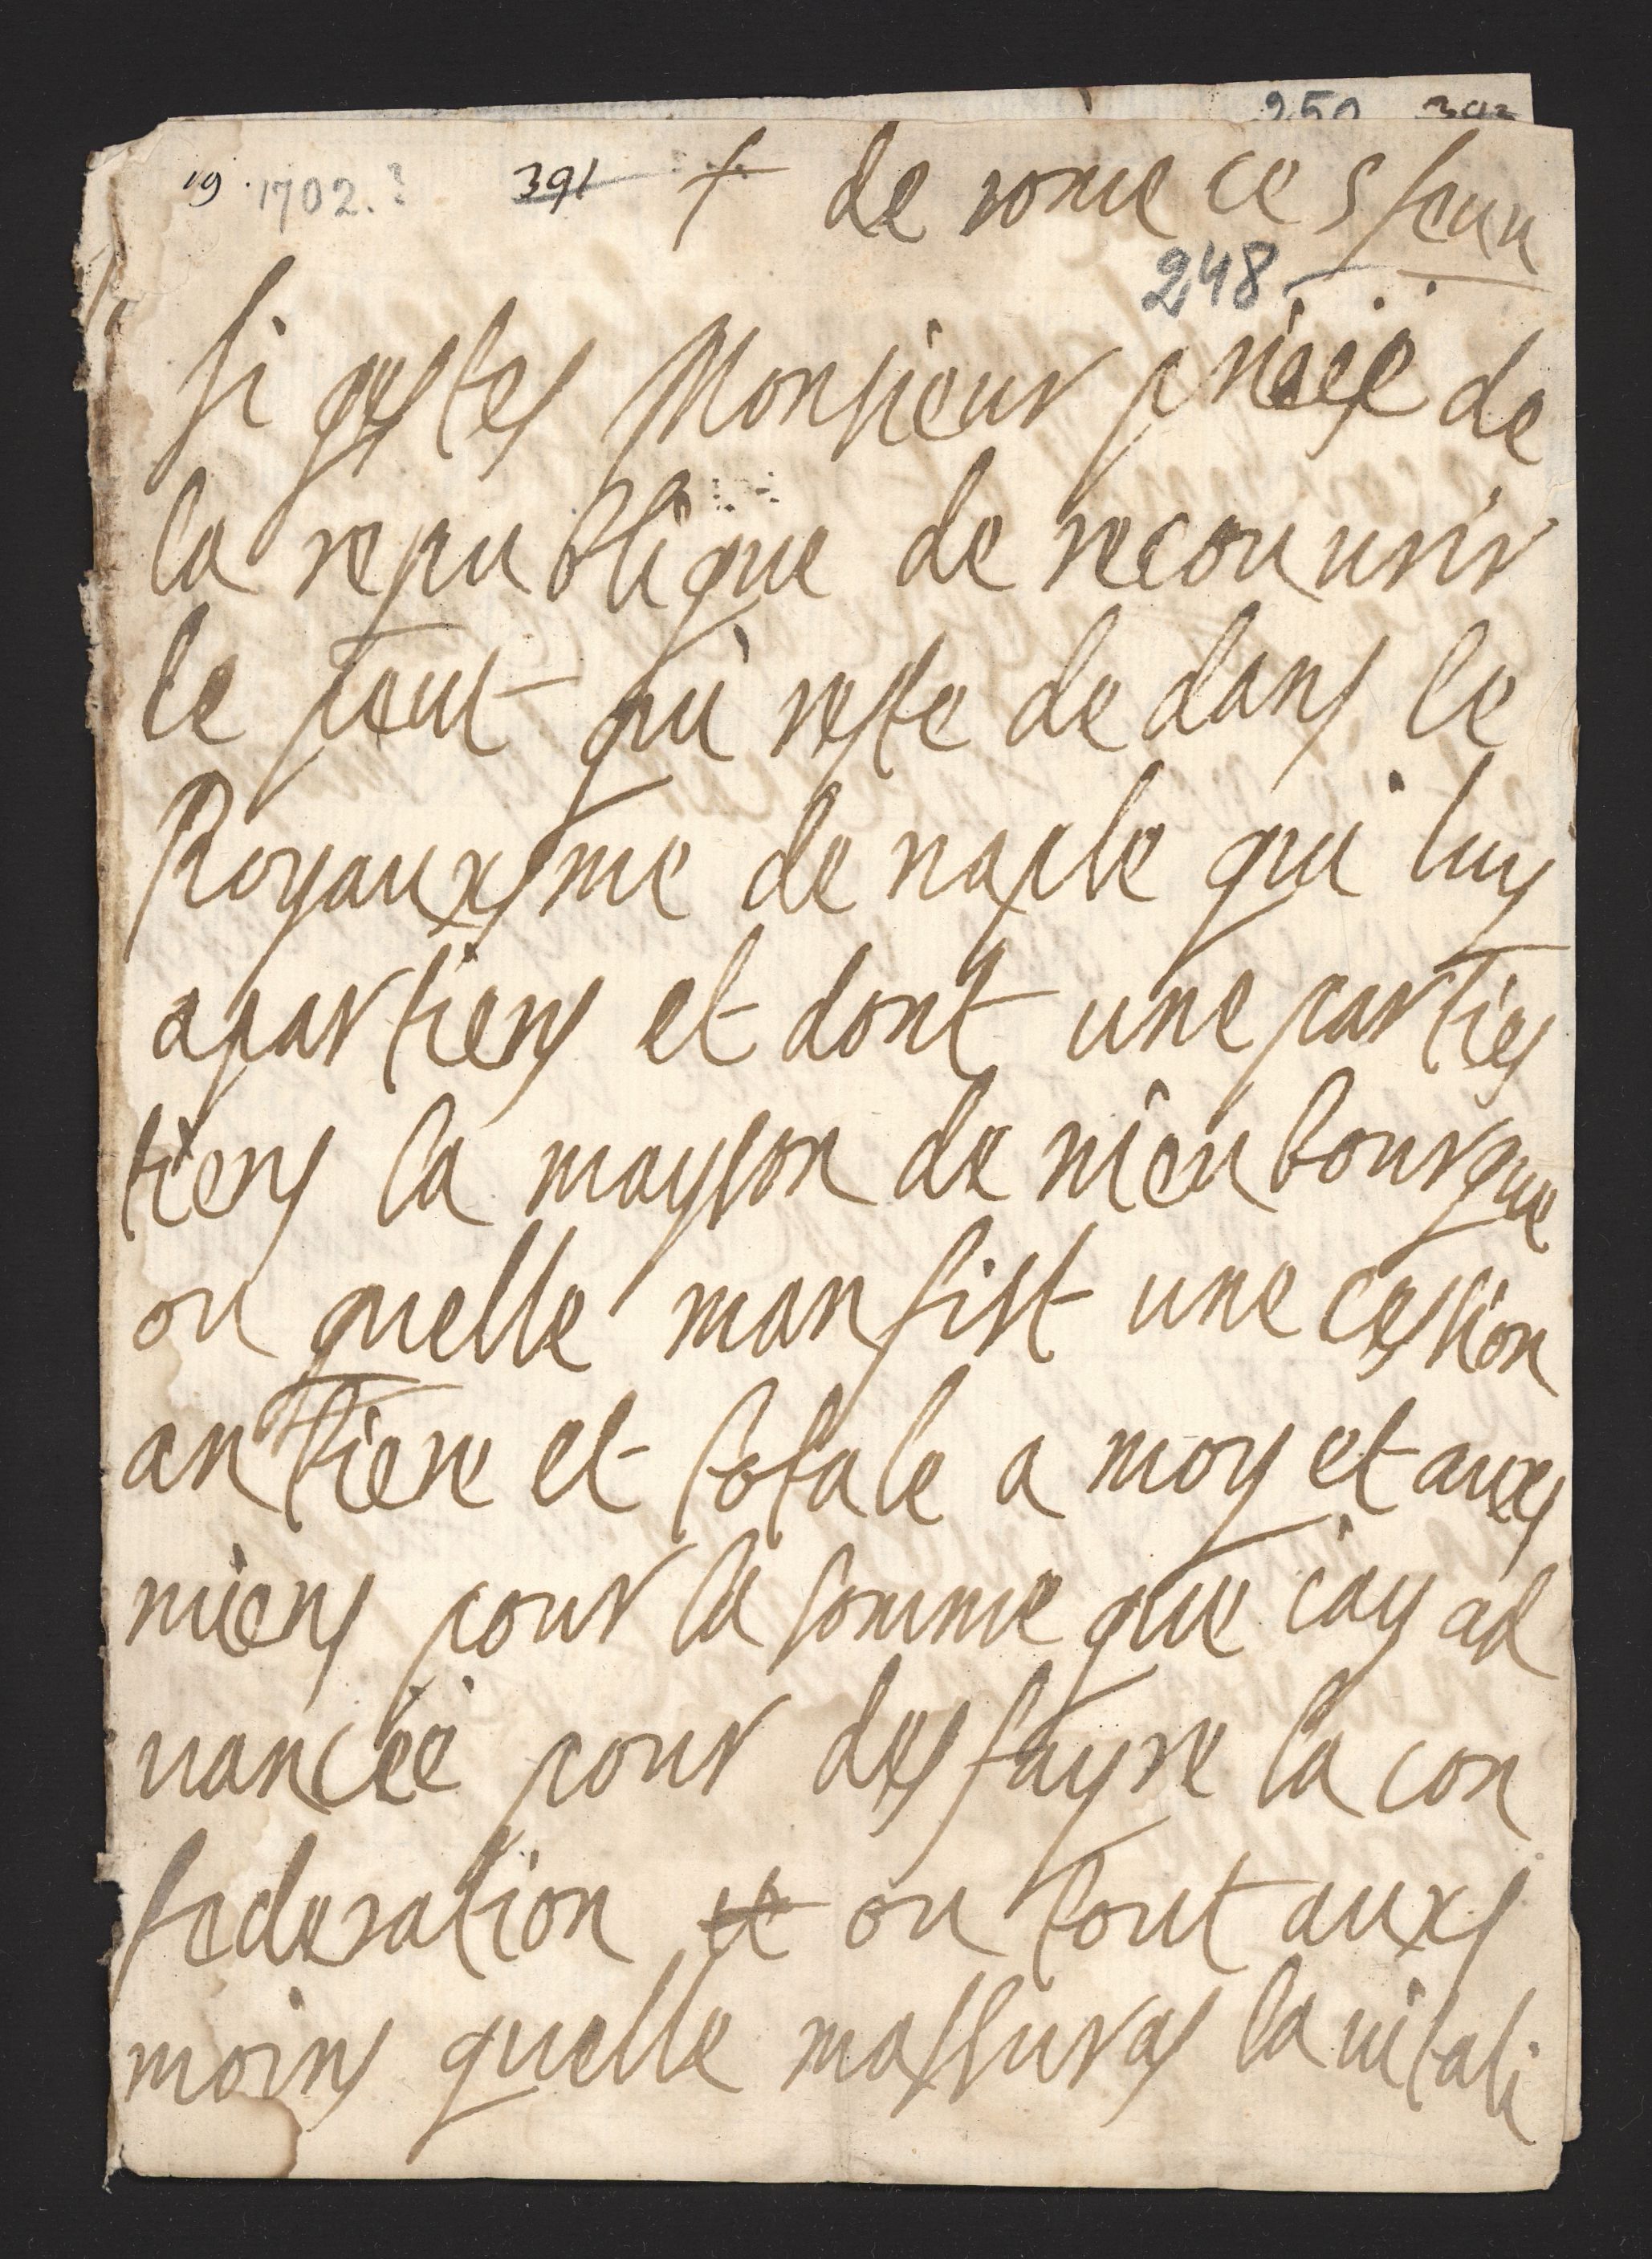 250 393
19. 1702.? 391 + de rome ce 5 feuu
248
si gestes Monsieur priéé de
la republique de recouurir
le peut qui reste de dans le
Royauxsme de naple qui luy
apartiens et dont une parties
tiens la mayson de nieubourgue
ou quelle manfist une cession
antiere et totale a moy et auxs
miens pour la somme que iay ad
vancéé pour desfayre la con
federation ou tout auxs
moins quelle massuras la uitali